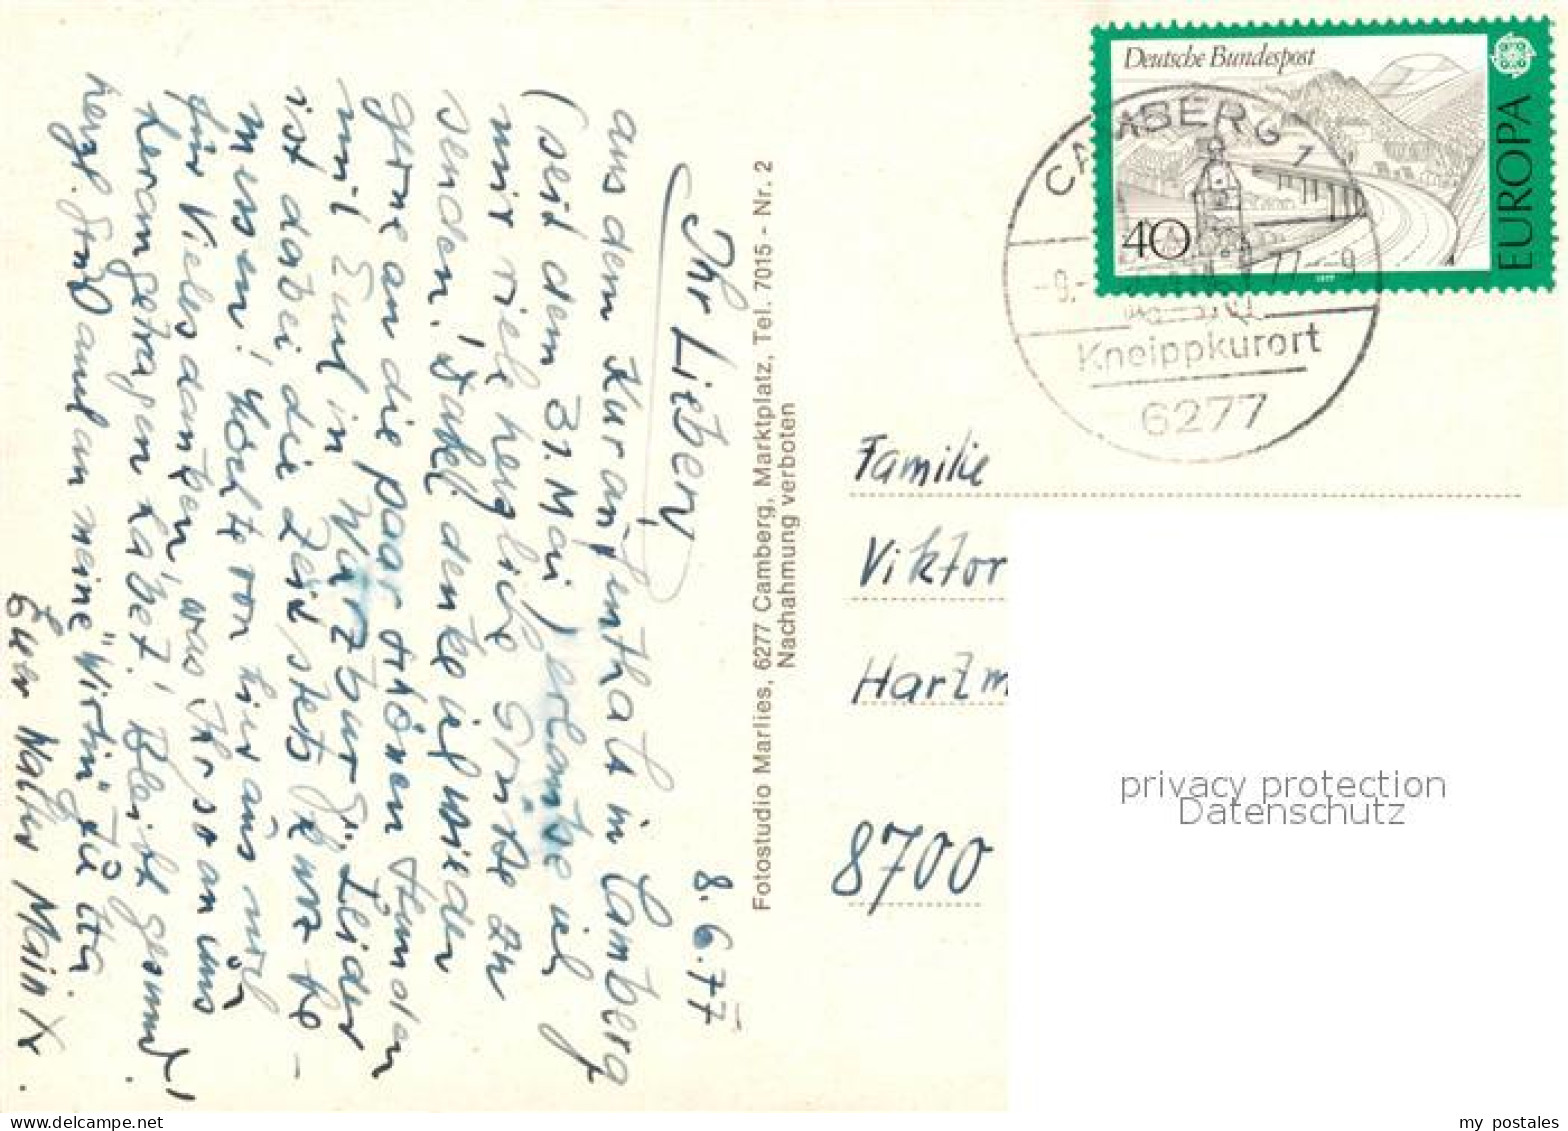 8.6.77
Ihr Lieben,
aus dem Kuraufenthalt in Camberg
(seit dem 31. Mai) erlaube ich
mir viele herzliche Grüße zu
senden. Dabei denke ich wieder
gerne an die paar schönen Stunden
mit Euch in Würzburg. Leider
ist dabei die Zeit stets kurz be-
messen! Möchte von hier aus noch
für Vieles danken, was Ihr so an uns
herangetragen habet! Bleibt gesund!
herzl. Gruß auch an meine "Wirtin"
Euer Walter
Fotostudio Marlies, 6277 Camberg, Marktplatz, Tel. 7015 - Nr. 2
Nachahmung verboten
Deutsche Bundespost
40
EUROPA
CAMBERG 1
77 - 9
Kneippkurort
6277
Familie
Viktor
8700
privacy protection
Datenschutz
my postales